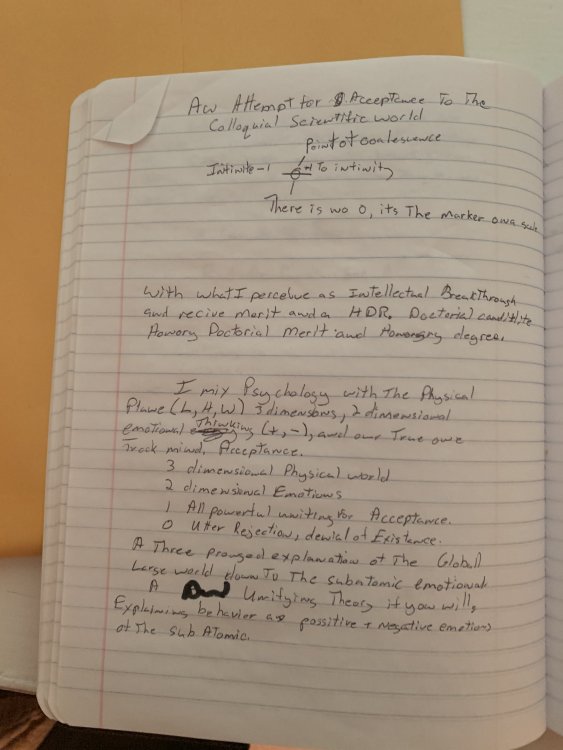 Aw Attempt for Acceptance To The
Colloquial Scientific world
Point of coalescence
Infinite -1 +1 To infinity
There is wo 0, its The marker on a scale
with what I perceive as Intellectual BreakThrough
and recive merit and a HDR. Docterial canditite
Honory Doctorial Merit and Honorary degree.
I mix Psychology with The Physical
Plane (L, H, W) 3 dimensions, 2 dimensional
emotional Thinking (+, -), and our True one
Track mind, Acceptance.
3 dimensional Physical world
2 dimensional Emotions
1 All powerful uniting for Acceptance.
0 Utter Rejection, denial of Existance.
A Three pronged explanation of The Globall
Large world down To The subatomic emotional.
A Unifying Theory if you will,
Explaining behavior as possitive + negative emotions
of The sub Atomic.